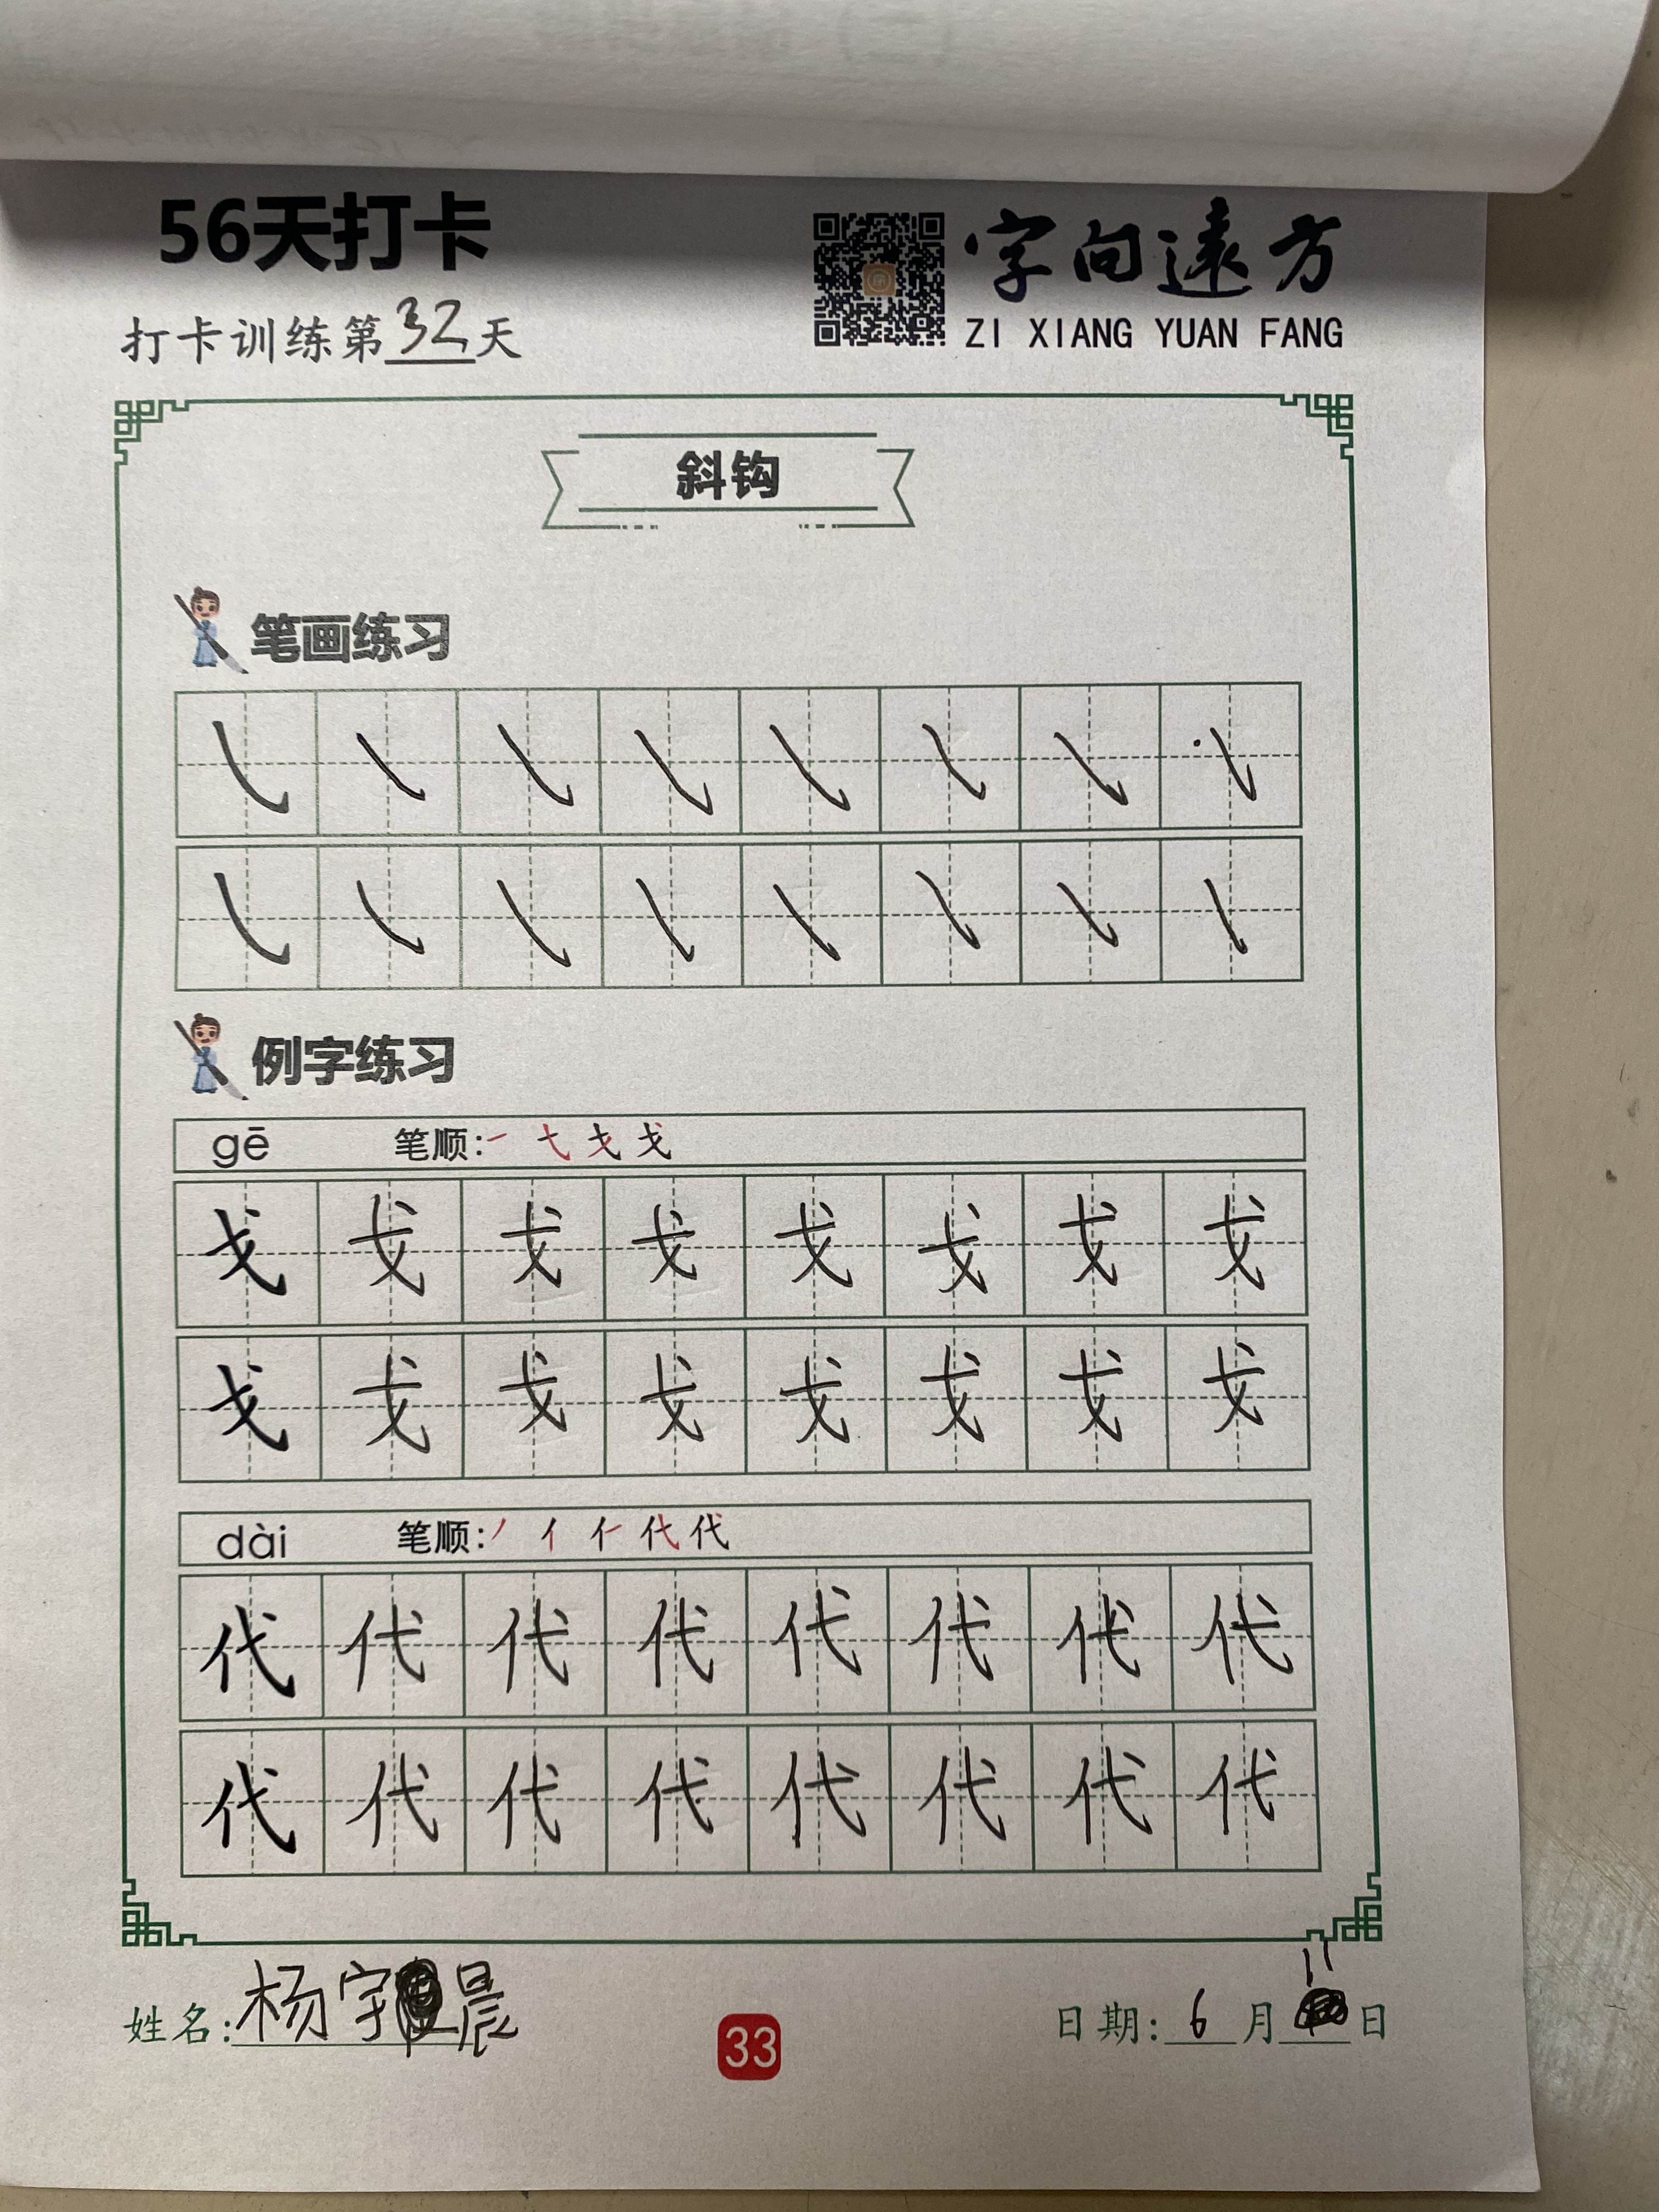 56天打卡
字向遠方
打卡训练第32天
ZI XIANG YUAN FANG
斜钩
笔画练习
例字练习
gē 笔顺:
戈 戈 戈 戈 戈 戈 戈 戈
戈 戈 戈 戈 戈 戈 戈 戈
dài 笔顺:
代 代 代 代 代 代 代 代
代 代 代 代 代 代 代 代
姓名: 杨宇晨
33
日期: 6月11日